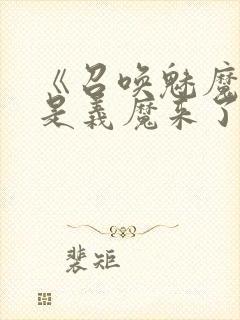 《召唤魅魔
是义魔来了
裴矩